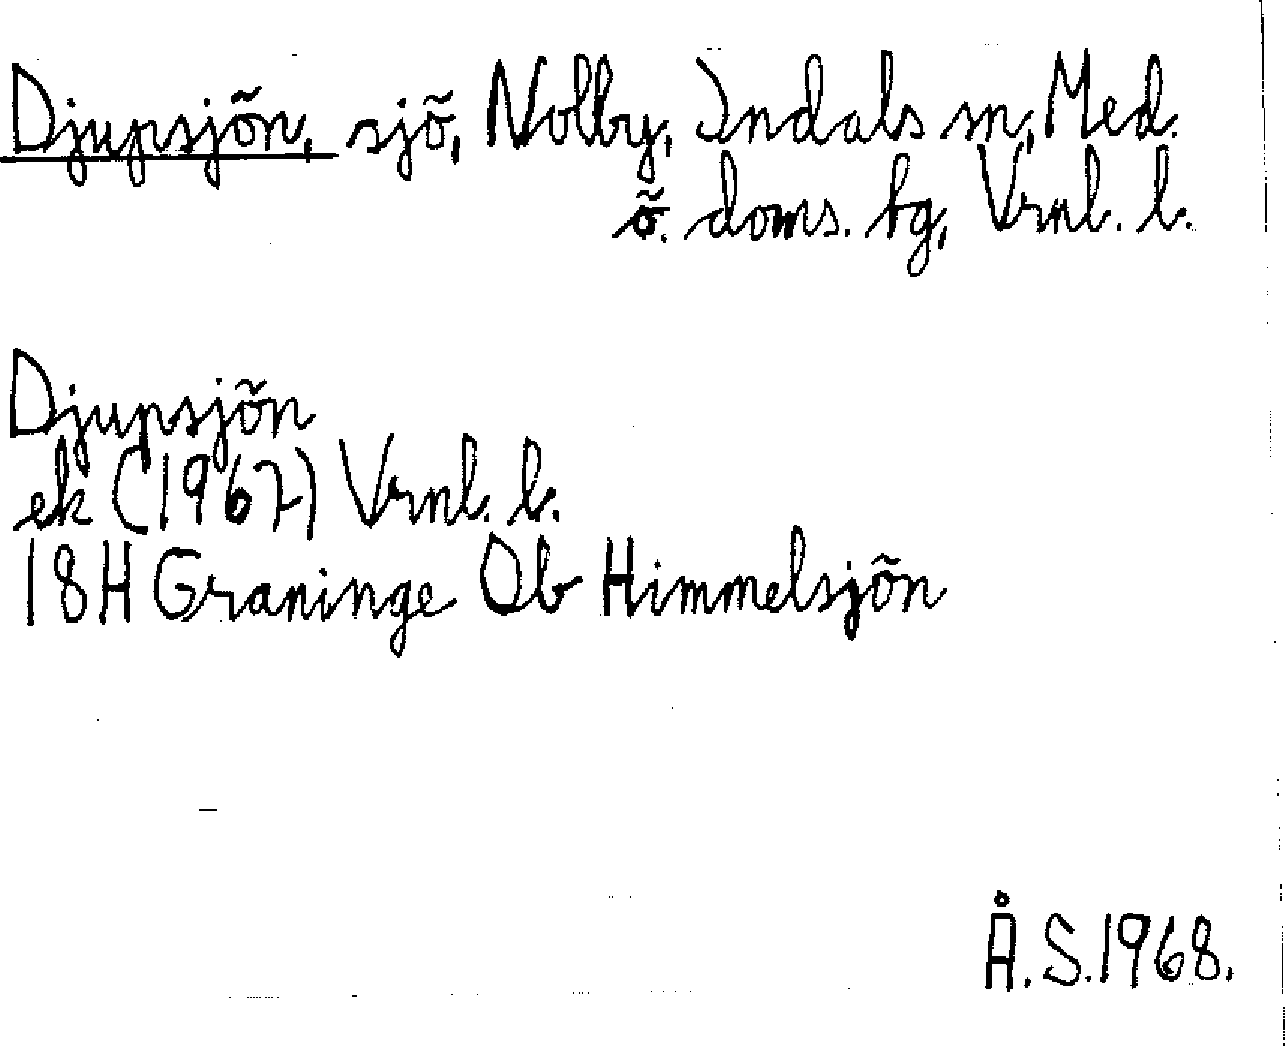 Djupsjön, sjö, Nolby, Indals sn, Med.
ö. doms. hg, Vrnl. l.
Djupsjön
ek (1967) Vrnl. l.
18H Graninge Ob Himmelsjön
Å.S.1968.